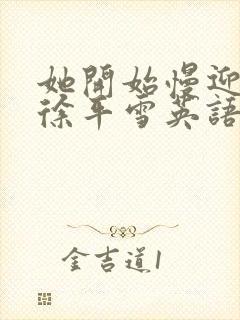 她開始慢迎
徐平雪英語
金吉道1